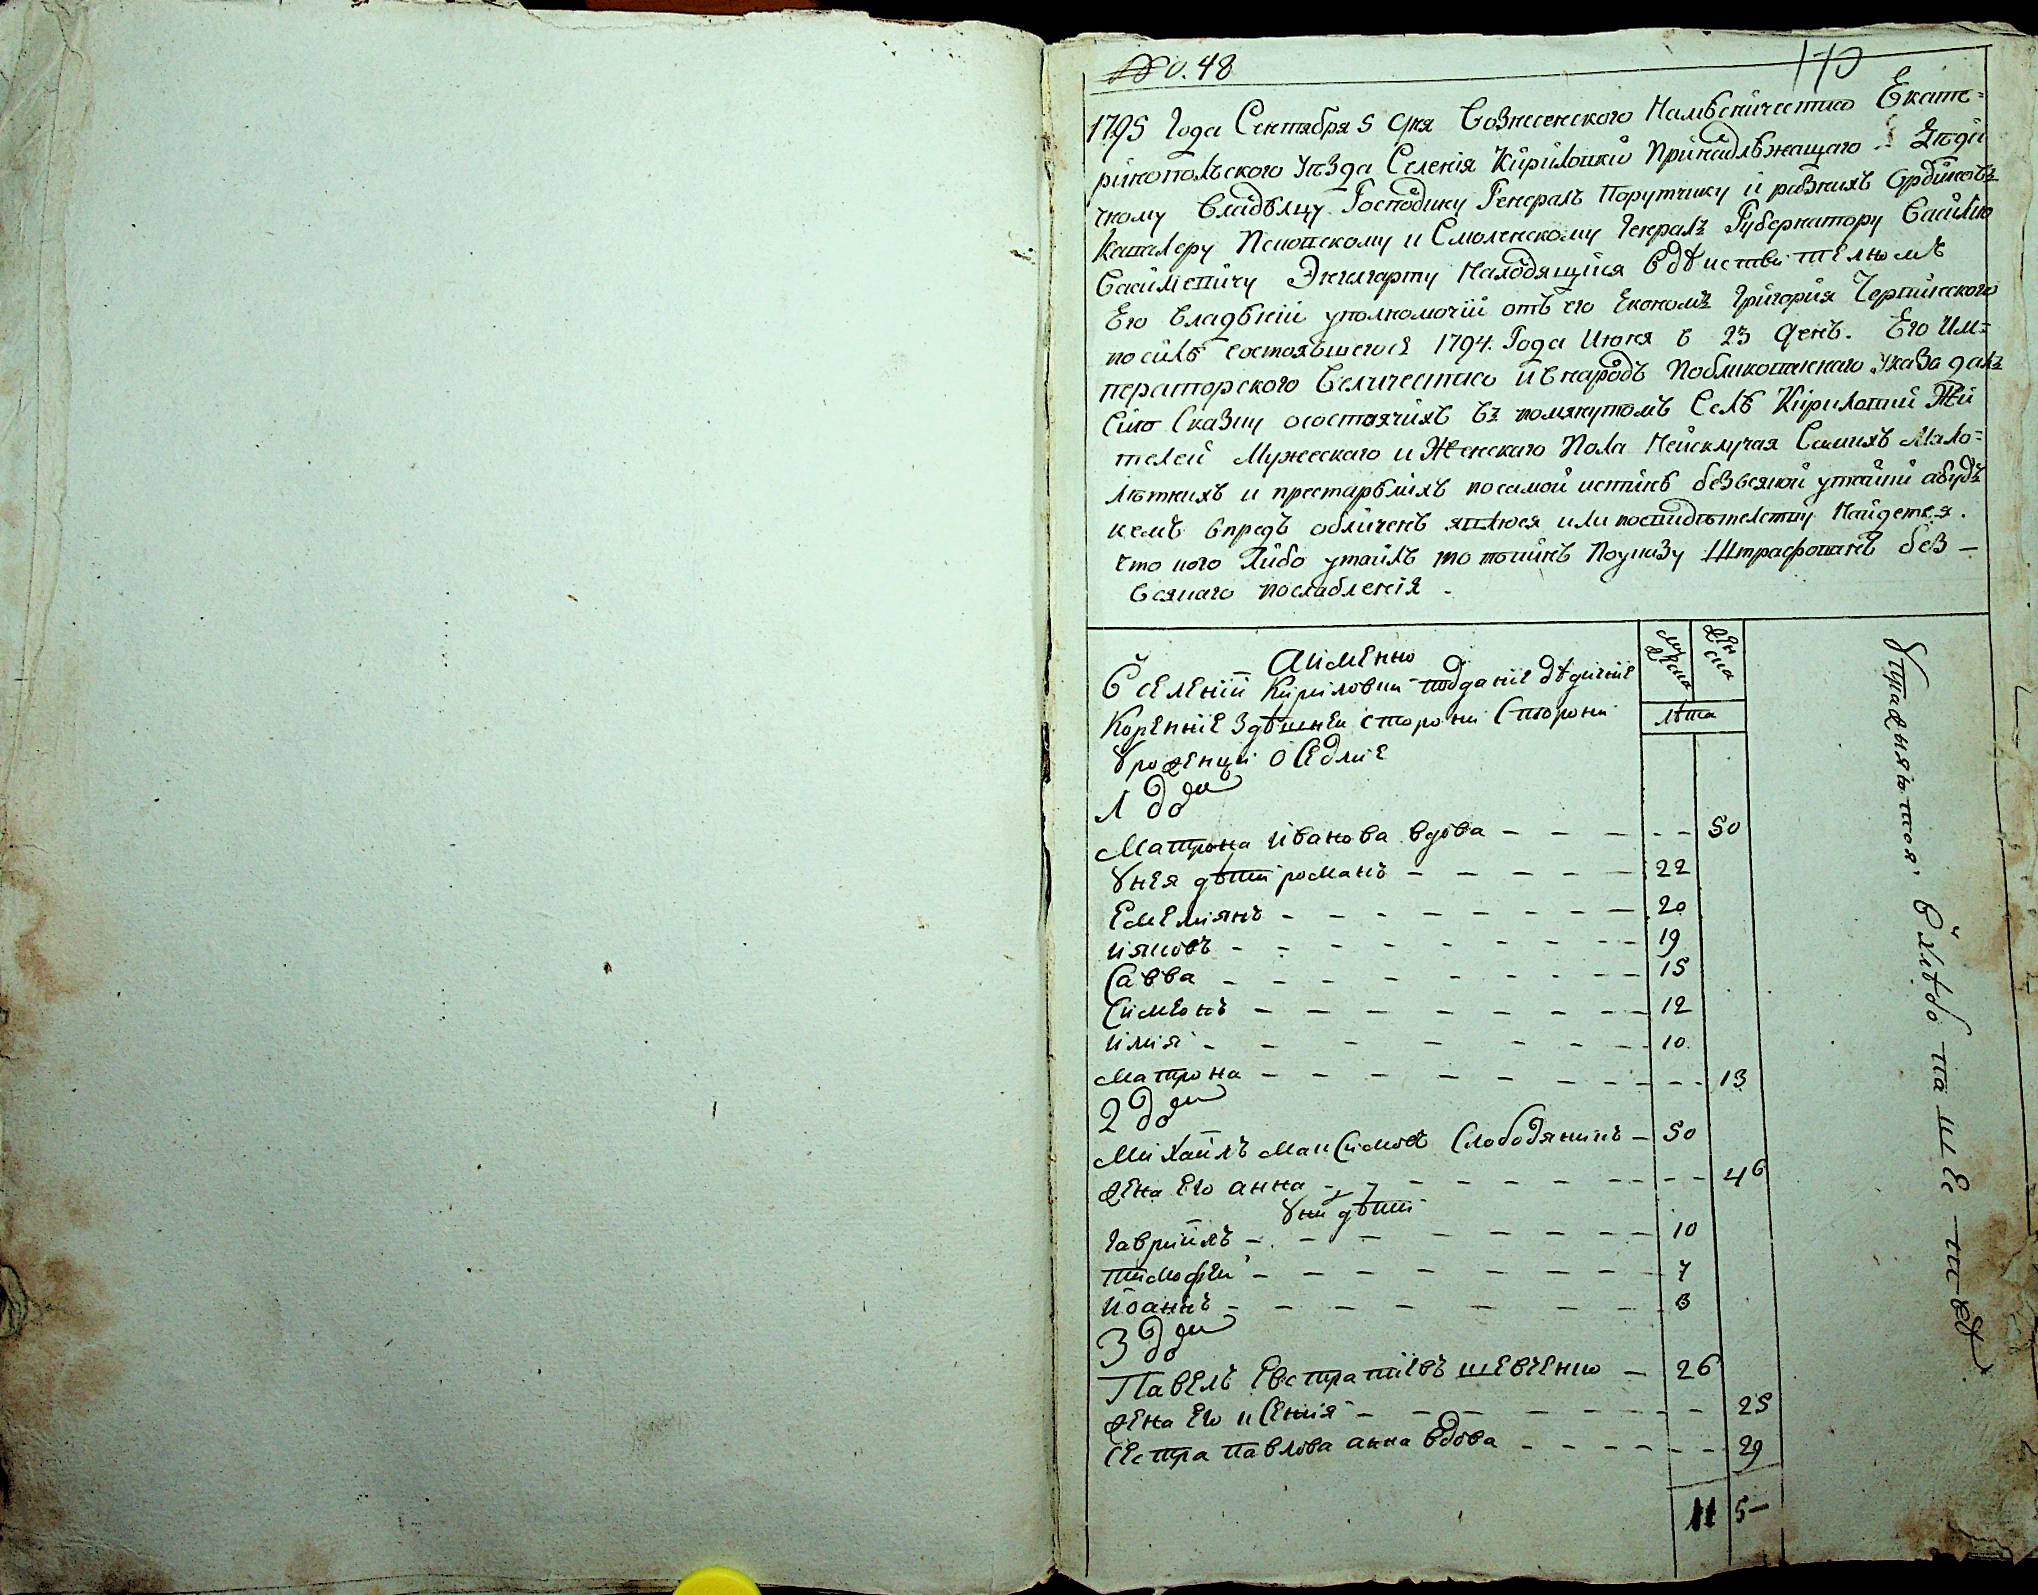 No. 48
170
1795 Года Сентября 5 дня Вознесенского Намѣсничества Екате=
ринопольского уѣзда Селенія Кириловки Принадлѣжащаго Дѣди
чному владѣлцу Господину Генералъ Порутчику и разнихъ Ордіновъ
Кавалеру Псковскому и Смоленскому Генералъ Губернатору Василію
Василіевичу Энгилгарту находящуися в дѣиствителномъ
Его владѣніи уполномочій отъ его Економъ Григорія
по силѣ состоявшегося 1794. Года Июня в 23 день. Его Им=
ператорского Величества и в народъ Публикованнаго указа далъ
Сию Сказку о состоячихъ въ помянутомъ Селѣ Кириловки Жи
телей Мужескаго и Женскаго Пола Неисключая Самихъ Мало=
лѣтнихъ и престарѣлихъ по самой истинѣ безвсякой утайки а буде
кемъ впредъ обличенъ явлюся или по свидѣтелству Найдется.
что кого Либо утаилъ то повиненъ Поуказу Штрафованъ без –
всякаго послабленія .
Аименно
В селеніи Кириловки подданіе дѣдичніе
Коренніе здѣшнеи сторони Сторони
Уроженци оседліе
мужеска
женска
лѣта
1 двор
Матрона Иванова вдова – – – – – 50
У нея дѣти романъ – – – – – 22
Емеліянъ – – – – – – – – 20
Ияковъ – – – – – – – – 19
Савва – – – – – – – – 15
Симеонъ – – – – – – – – 12
Илия – – – – – – – 10
Матрона – – – – – – – – – 13
2 двор
Михаилъ Максимовъ Слободянникъ – 50
жена Его анна – – – – – – – – – 46
У них дѣти
Гавриилъ – – – – – – – – 10
Тимофеи – – – – – – – – 7
Иоаннъ – – – – – – – – 3
3 двор
Павелъ Евстратіевъ шевченко – 26
жена Его Ксенія – – – – – – – – 25
Сестра Павлова анна вдова – – – – – – 29
11 5–
Упражняются. В хлѣбопашествѣ